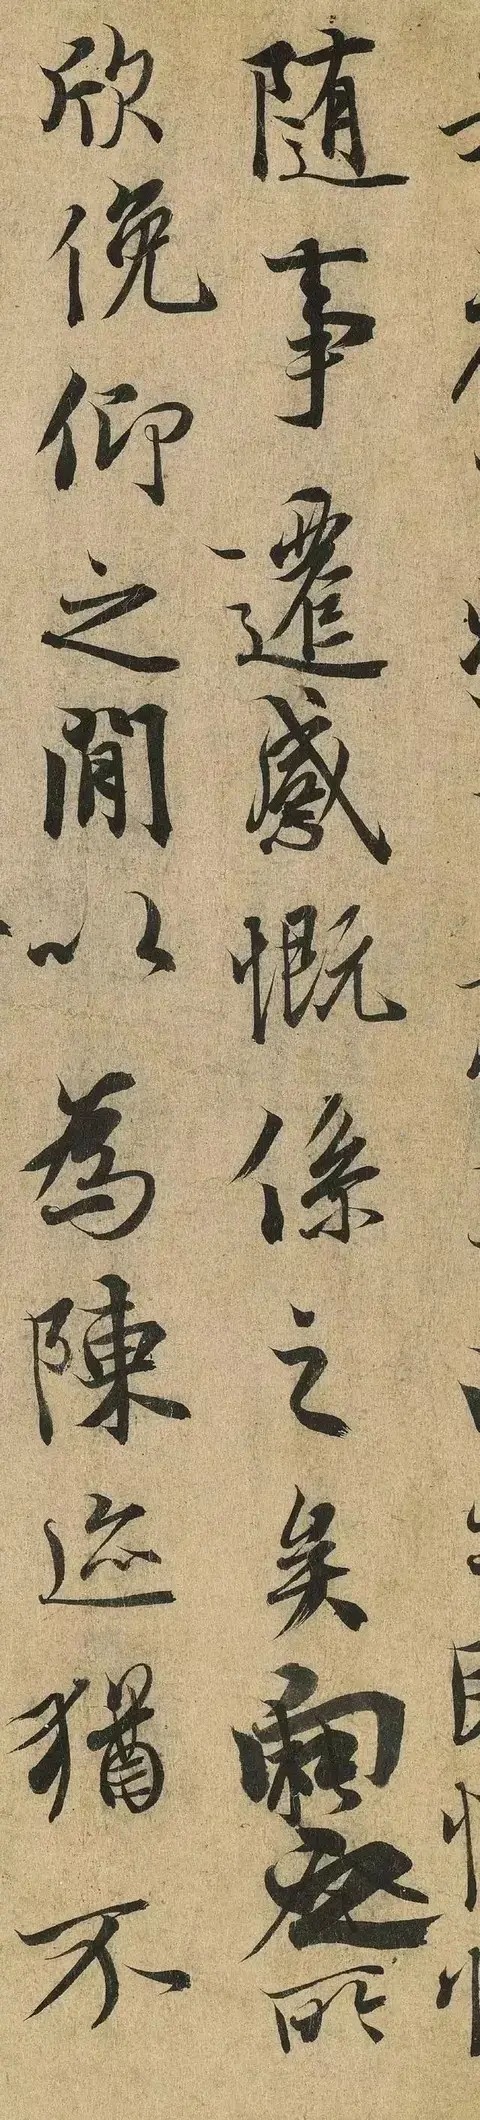 随事遷感慨係之矣向之所
欣俛仰之間以為陳迹猶不